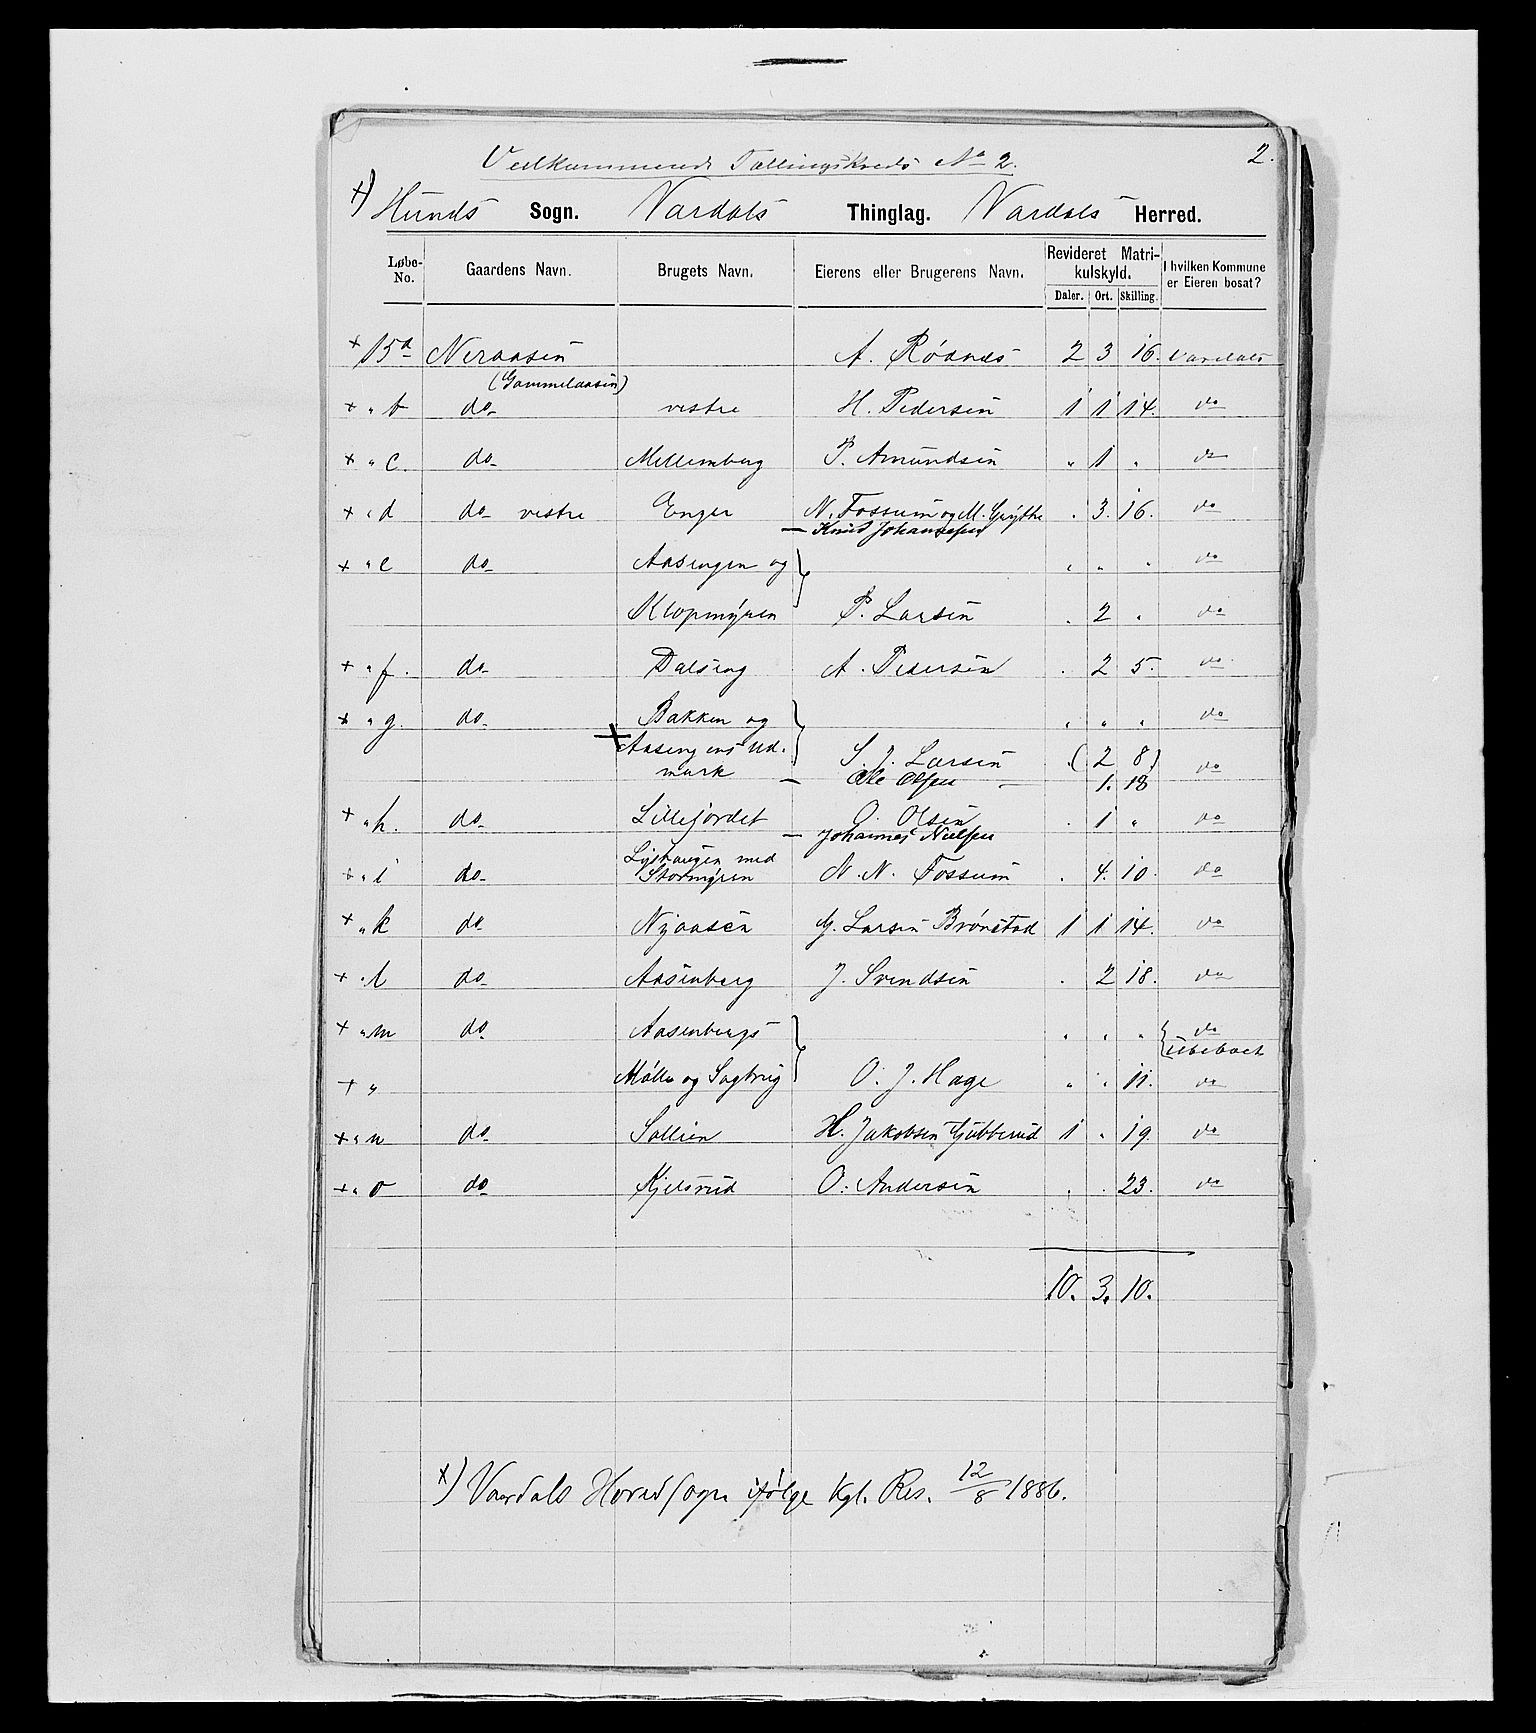 Vedkommende Tællingskreds No 2.
2.
x) Hunds Sogn. Vardals Thinglag. Vardals Herred.
Løbe-No. Gaardens Navn. Brugets Navn. Eierens eller Brugerens Navn. Revideret Matrikulskyld. I hvilken Kommune er Eieren bosat?
Daler. Ort. Skilling.
x 15a Neraasen A. Røsnes 2 3 16. Vardals
(Gammelaasen)
x " b do vestre H. Pedersen 1 1 14. do
x " c. do Mellemberg P. Amundsen " 1 " do
x " d do vestre Enger N. Fossum og M. Grythe . 3. 16. do
— Knud Johannesen
x " e do Aasengen og } " " " do
Klopmyren P. Larsen . 2 " do
x " f. do Dalseng A. Pedersen . 2 5. do
x " g. do Bakken og } " " " do
x Aasengens Ud-
mark S. J. Larsen . (2 8) do
— Ole Olsen — 1. 18
x " h. do Lillejordet O. Olsen . 1 " do
— Johannes Nielsen
x " i do Lyshaugen med
Stormyren N. N. Fossum . 4. 10. do
x " k do Nyaasen G. Larsen Brønstad 1 1 14. do
x " l do Aasenberg J. Svendsen . 2 18. do
x " m do Aasenbergs } " " " { do
ubeboet
x " Mølle og Sagbrug O. J. Hage " " 11. do
x " n do Sollien H. Jakobsen Gubberud 1 . 19 do
x " o do Kjelsrud O. Andersen . . 23. do
10. 3. 10.
x) Vardals Hovedsogn ifølge Kgl. Res. 12/8 1886.